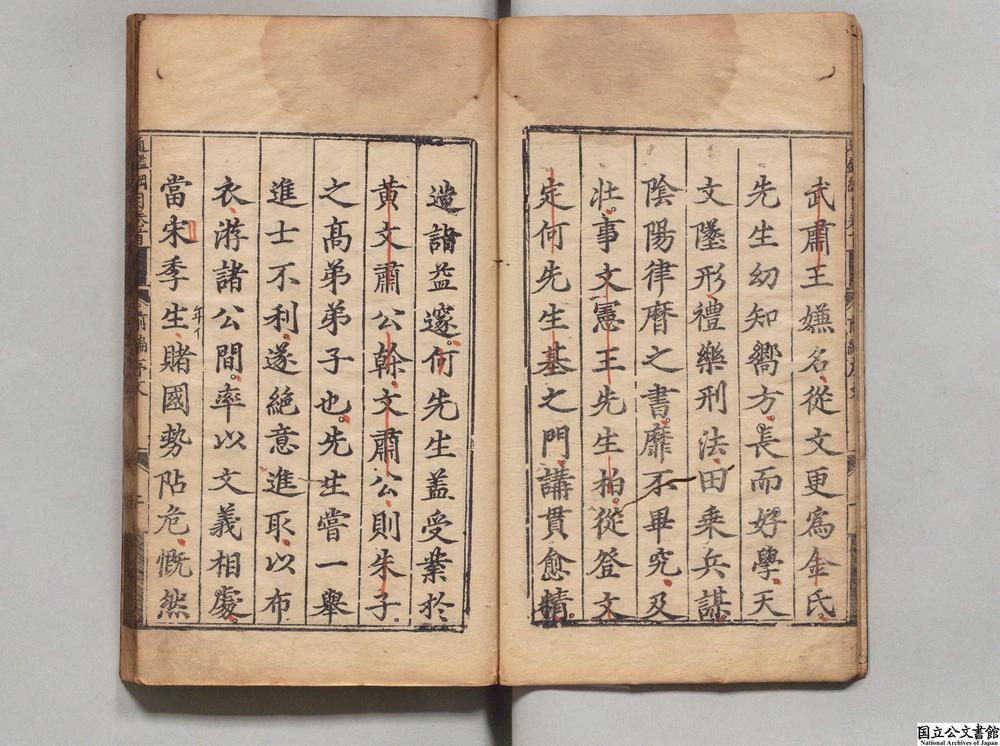 武肅王嫌名從文更爲金氏
先生幼知嚮方長而好學天
文墬形禮樂刑法田乗兵謀
陰陽律曆之書靡不畢究及
壯事文憲王先生柏從登文
定何先生基之門講貫愈精
造詣益邃何先生蓋受業於
黃文肅公幹文肅公則朱子
之髙弟弟子也先生嘗一舉
進士不利遂絶意進取以布
衣游諸公間率以文義相處
當宋季年生賭國勢阽危慨然
通鑑綱目卷首
前編序文
国立公文書館
National Archives of Japan